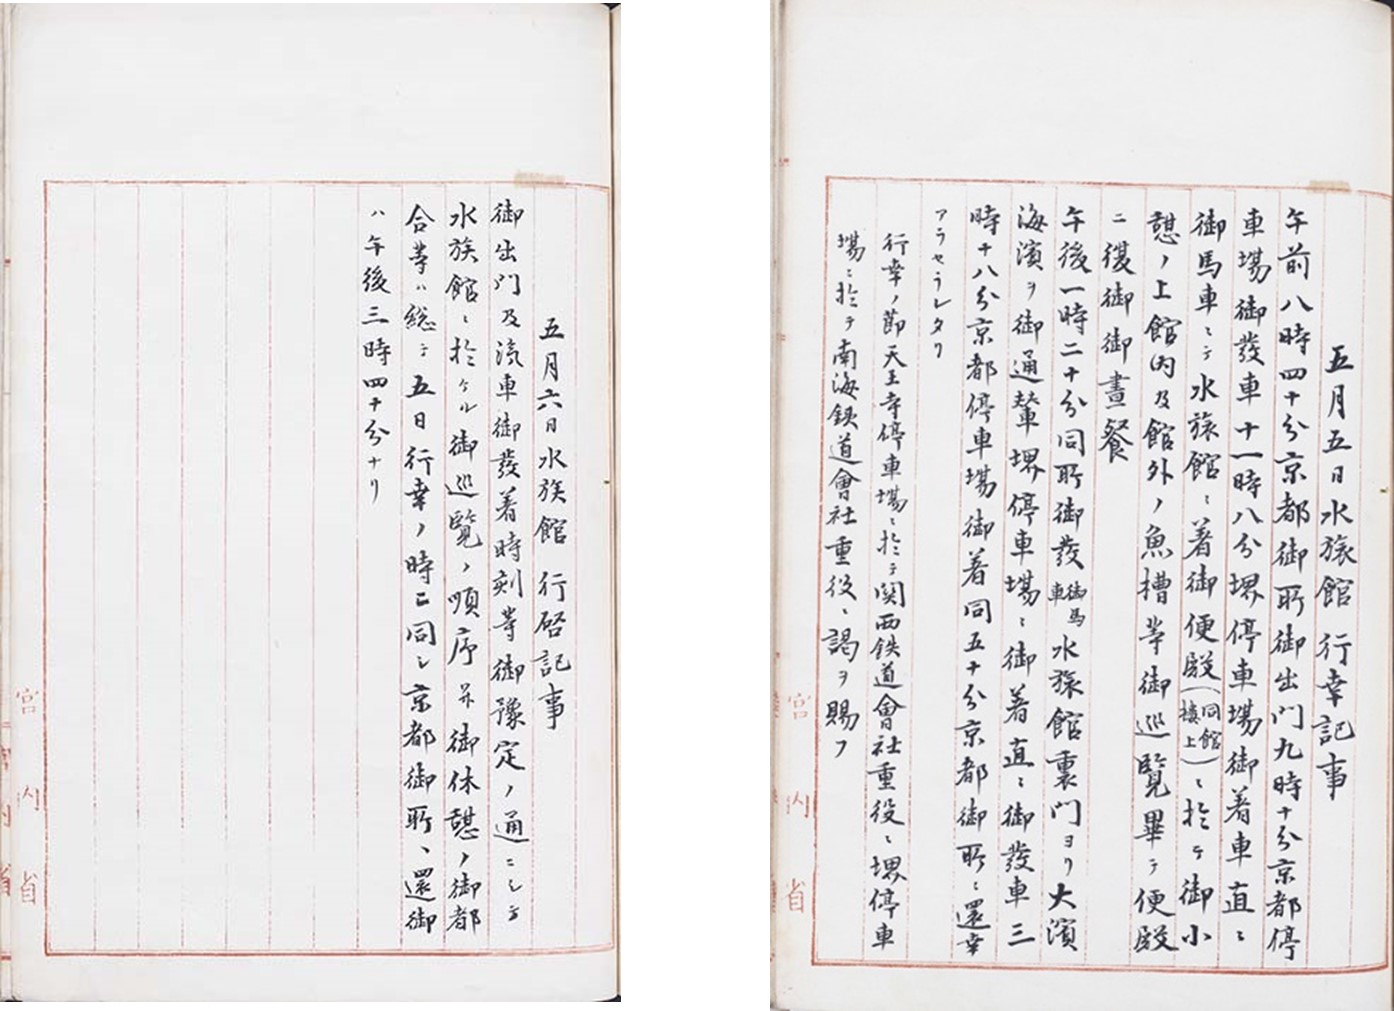 五月五日水族館 行幸記事
午前八時四十分京都御所御出門九時十分京都停
車場御發車十一時八分堺停車場御着車直ニ
御馬車ニテ水族館ニ著御便殿(同館樓上)ニ於テ御小
憩ノ上館内及館外ノ魚槽等御巡覽畢テ便殿
ニ復御御晝餐
午後一時二十分同所御發御馬車水族館裏門ヨリ大濱
海濱ヲ御通輦堺停車場ニ御著直ニ御發車三
時十八分京都停車場御着同五十分京都御所ニ還幸
アラセラレタリ
行幸ノ節天王寺停車場ニ於テ関西鉄道會社重役ニ堺停車
場ニ於テ南海鉄道會社重役ニ謁ヲ賜フ
宮内省
五月六日水族館 行啓記事
御出門及汽車御發着時刻等御豫定ノ通ニシテ
水族館ニ於ケル御巡覽ノ順序并御休憩ノ御都
合等ハ総テ五日行幸ノ時ニ同シ京都御所ヘ還御
ハ午後三時四十分ナリ
宮内省